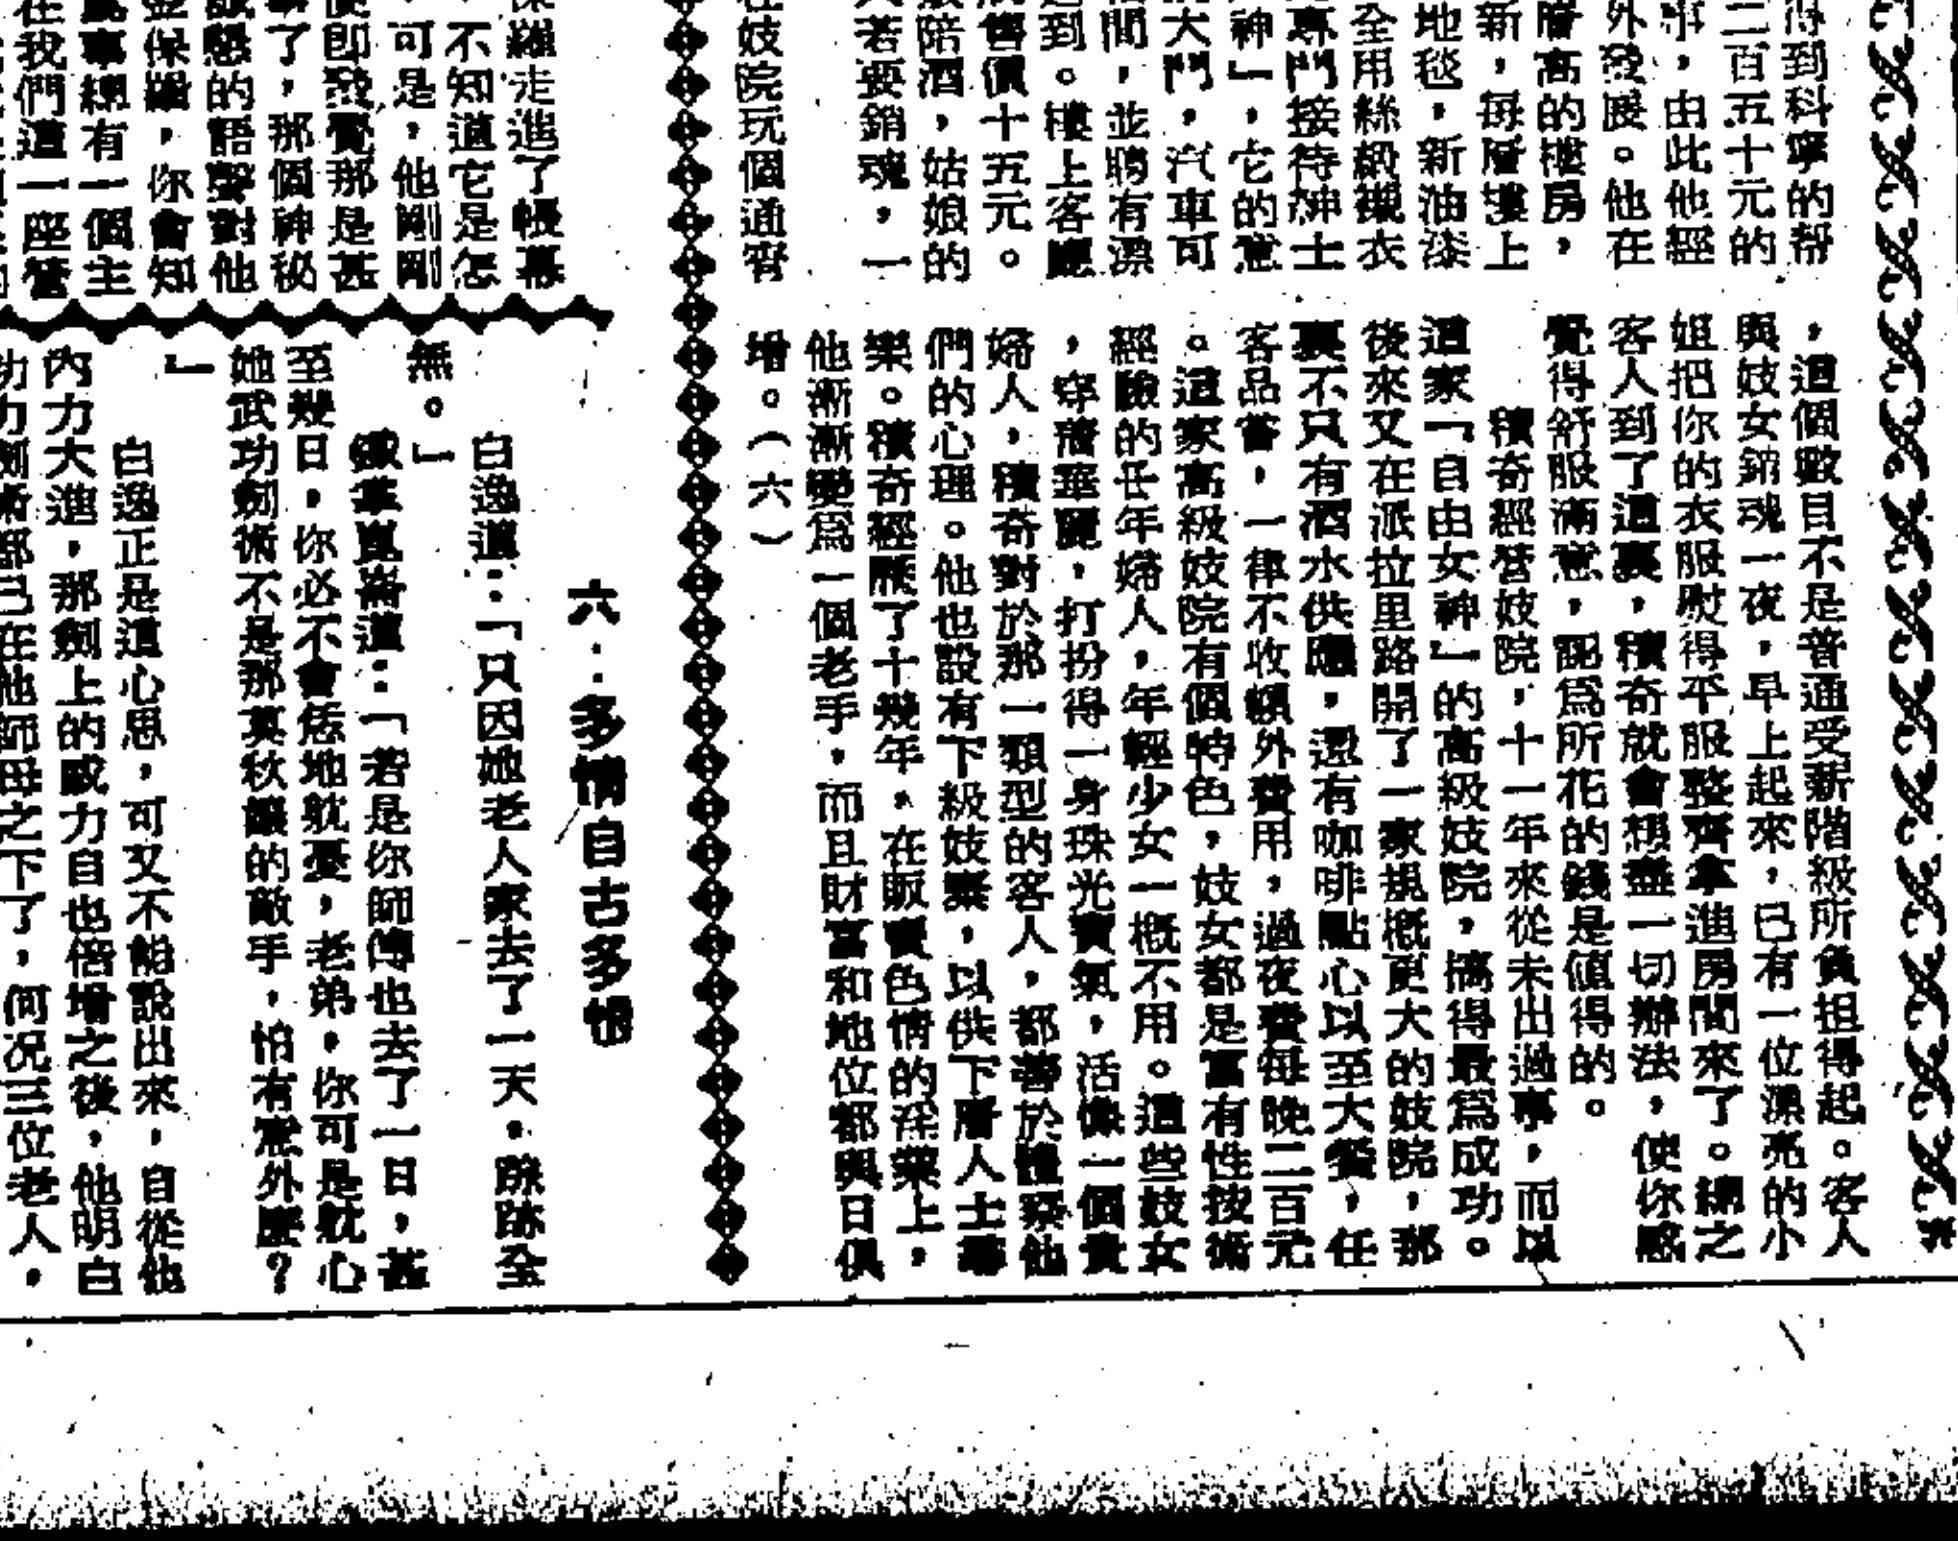 得到科寧的帮
二百五十元的
事，由此他經
外發展。他在
層高的樓房，
新，每層樓上
地毯，新油漆
全用絲緞襯衣
專門接待紳士
神」，它的意
大門，汽車可
間，並聘有漂
到。樓上客廳
售價十五元。
陪酒，姑娘的
若要銷魂，一
在妓院玩個通宵
，這個數目不是普通受薪階級所負担得起。客人
與妓女銷魂一夜，早上起來，已有一位漂亮的小
姐把你的衣服熨得平服整齊拿進房間來了。總之
客人到了這裏，積奇就會想盡一切辦法，使你感
覺得舒服滿意，認爲所花的錢是值得的。
積奇經營妓院，十一年來從未出過事，而以
這家「自由女神」的高級妓院，搞得最爲成功。
後來又在派拉里路開了一家規概更大的妓院，那
裏不只有酒水供應，還有咖啡點心以至大餐，任
客品嘗，一律不收額外費用，過夜費每晚二百元
。這家高級妓院有個特色，妓女都是富有性技術
經驗的壬年婦人，年輕少女一概不用。這些妓女
，穿著華麗，打扮得一身珠光寶氣，活像一個貴
婦人，積奇對於那一類型的客人，都善於體察他
們的心理。他也設有下級妓寨，以供下層人士尋
樂。積奇經歷了十幾年，在販賣色情的淫業上，
他漸漸變爲一個老手，而且財富和地位都與日俱
增。（六）
保羅走進了帳幕
，不知道它是怎
，可是，他剛剛
便即發覺那是甚
事了，那個神秘
誠懇的語聲對他
金保羅，你會知
事總有一個主
在我們這一座營
六：多情自古多恨
白逸道：「只因她老人家去了一天，踪跡全
無。」
鐵掌崑崙道：「若是你師傅也去了一日，甚
至幾日，你必不會恁地躭憂，老弟，你可是躭心
她武功劍術不是那莫秋孃的敵手，怕有意外麼？
」
白逸正是這心思，可又不能說出來，自從他
內力大進，那劍上的威力自也倍增之後，他明白
功力劍術都已在他師母之下了，何况三位老人，